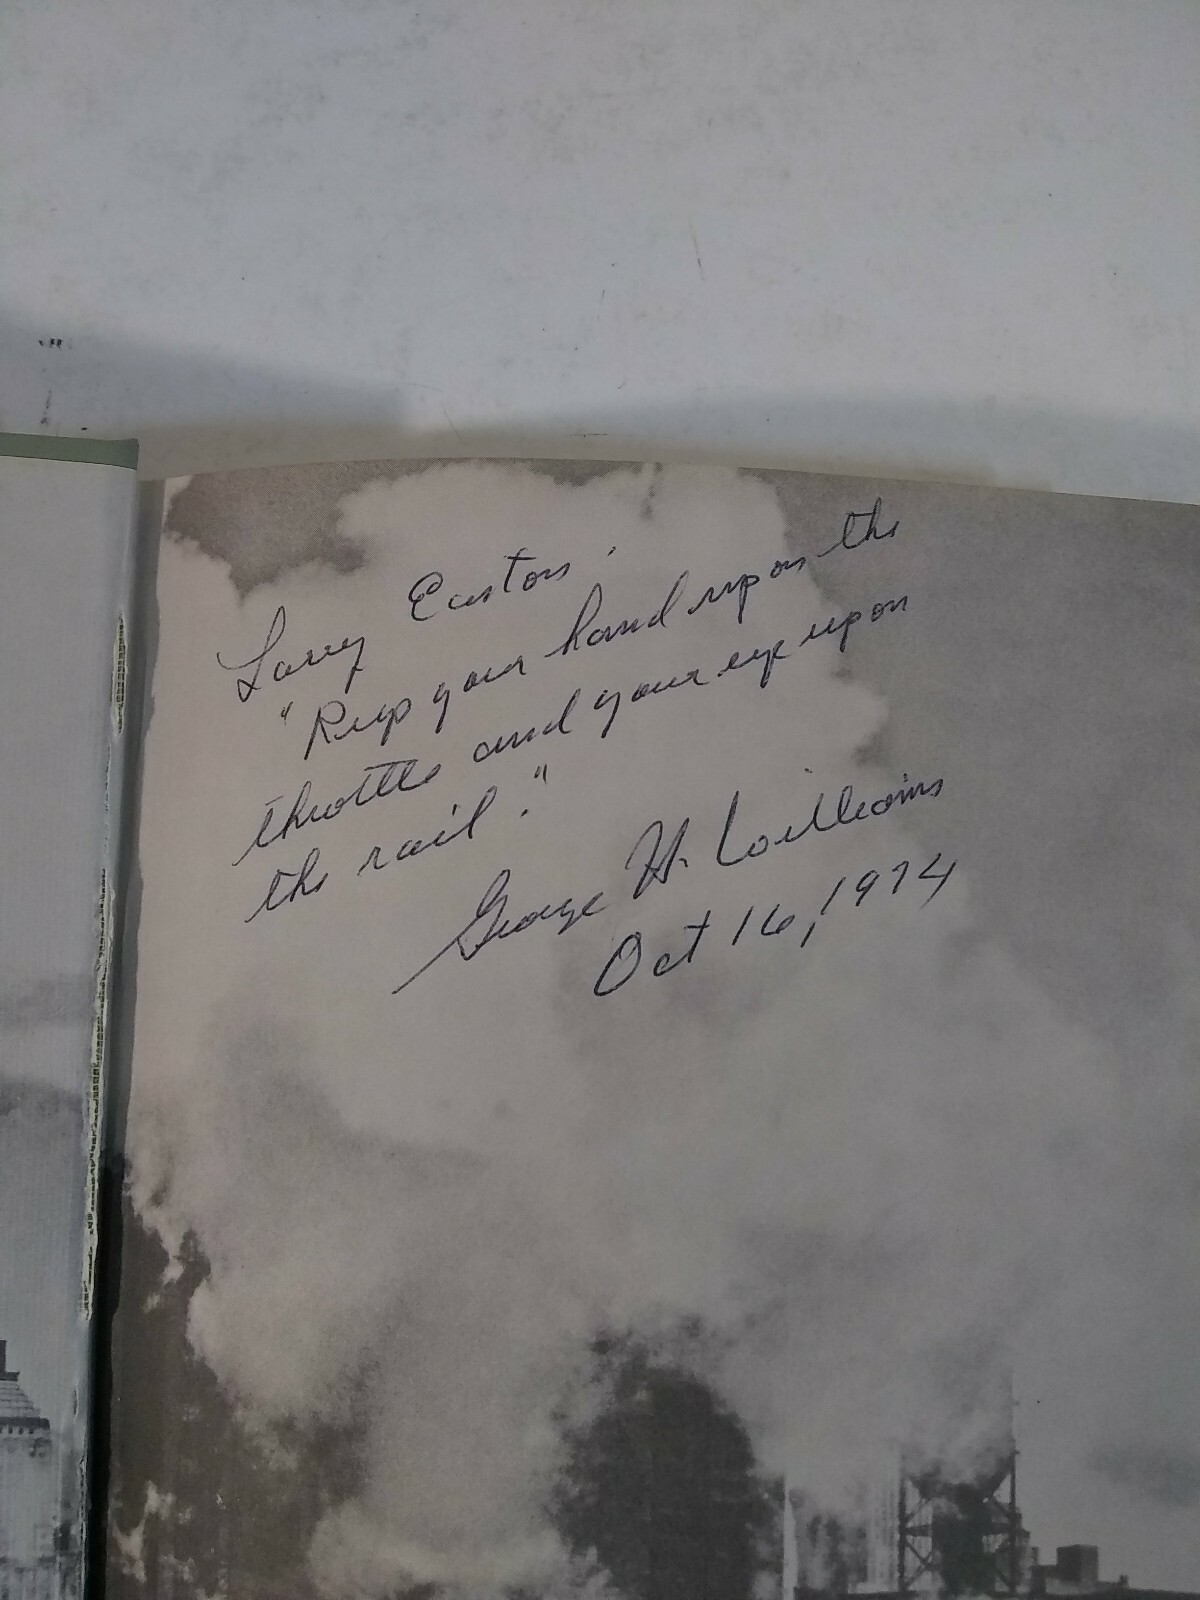 Larry Easton:
"Keep your hand upon the
throttle and your eye upon
the rail."
George H. Williams
Oct 16, 1974